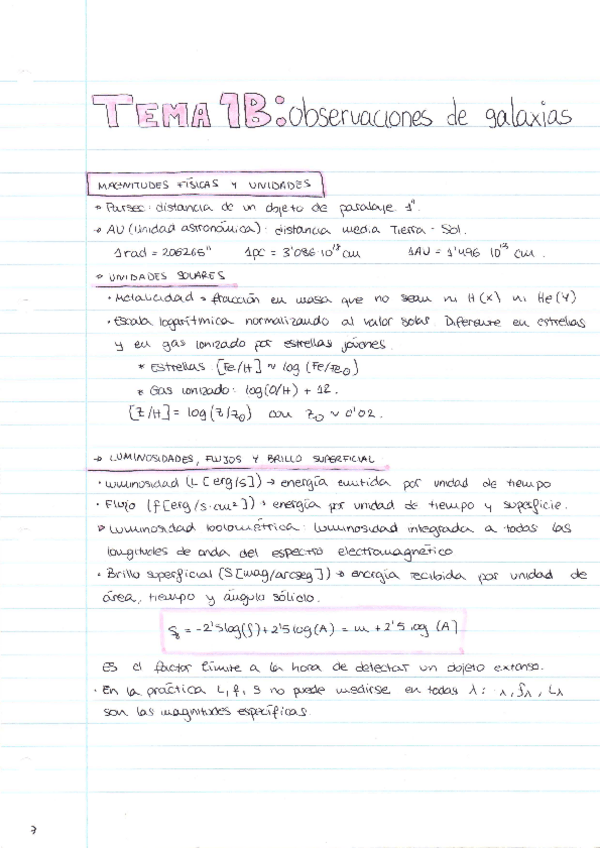 TEMA 1B: observaciones de galaxias
MAGNITUDES FÍSICAS Y UNIDADES
→ Parsec: distancia de un objeto de paralaje 1".
→ AU (unidad astronómica): distancia media Tierra - Sol.
1rad = 206265" 1pc = 3'086·10¹⁸ cm 1AU = 1'496 10¹³ cm.
→ UNIDADES SOLARES
· Metalicidad → fracción en masa que no sean ni H(X) ni He(Y)
· Escala logarítmica normalizando al valor solar. Diferente en estrellas
y en gas ionizado por estrellas jóvenes.
* Estrellas: [Fe/H] ~ log (Fe/Fe⊙)
* Gas ionizado: log(O/H) + 12.
[Z/H] = log(Z/Z⊙) con Z⊙ ~ 0'02.
→ LUMINOSIDADES, FLUJOS Y BRILLO SUPERFICIAL
· Luminosidad (L [erg/s]) → energía emitida por unidad de tiempo
· Flujo (f[erg/s·cm²]) → energía por unidad de tiempo y superficie.
→ Luminosidad bolométrica: luminosidad integrada a todas las
longitudes de onda del espectro electromagnético
· Brillo superficial (S[mag/arcseg]) → energía recibida por unidad de
área, tiempo y ángulo sólido.
= -2'5log(f)+2'5log(A) = m + 2'5 log (A)
Es el factor límite a la hora de detectar un objeto extenso.
· En la práctica L, f, S no puede medirse en todas λ: λ, fλ, Lλ
son las magnitudes específicas.
3